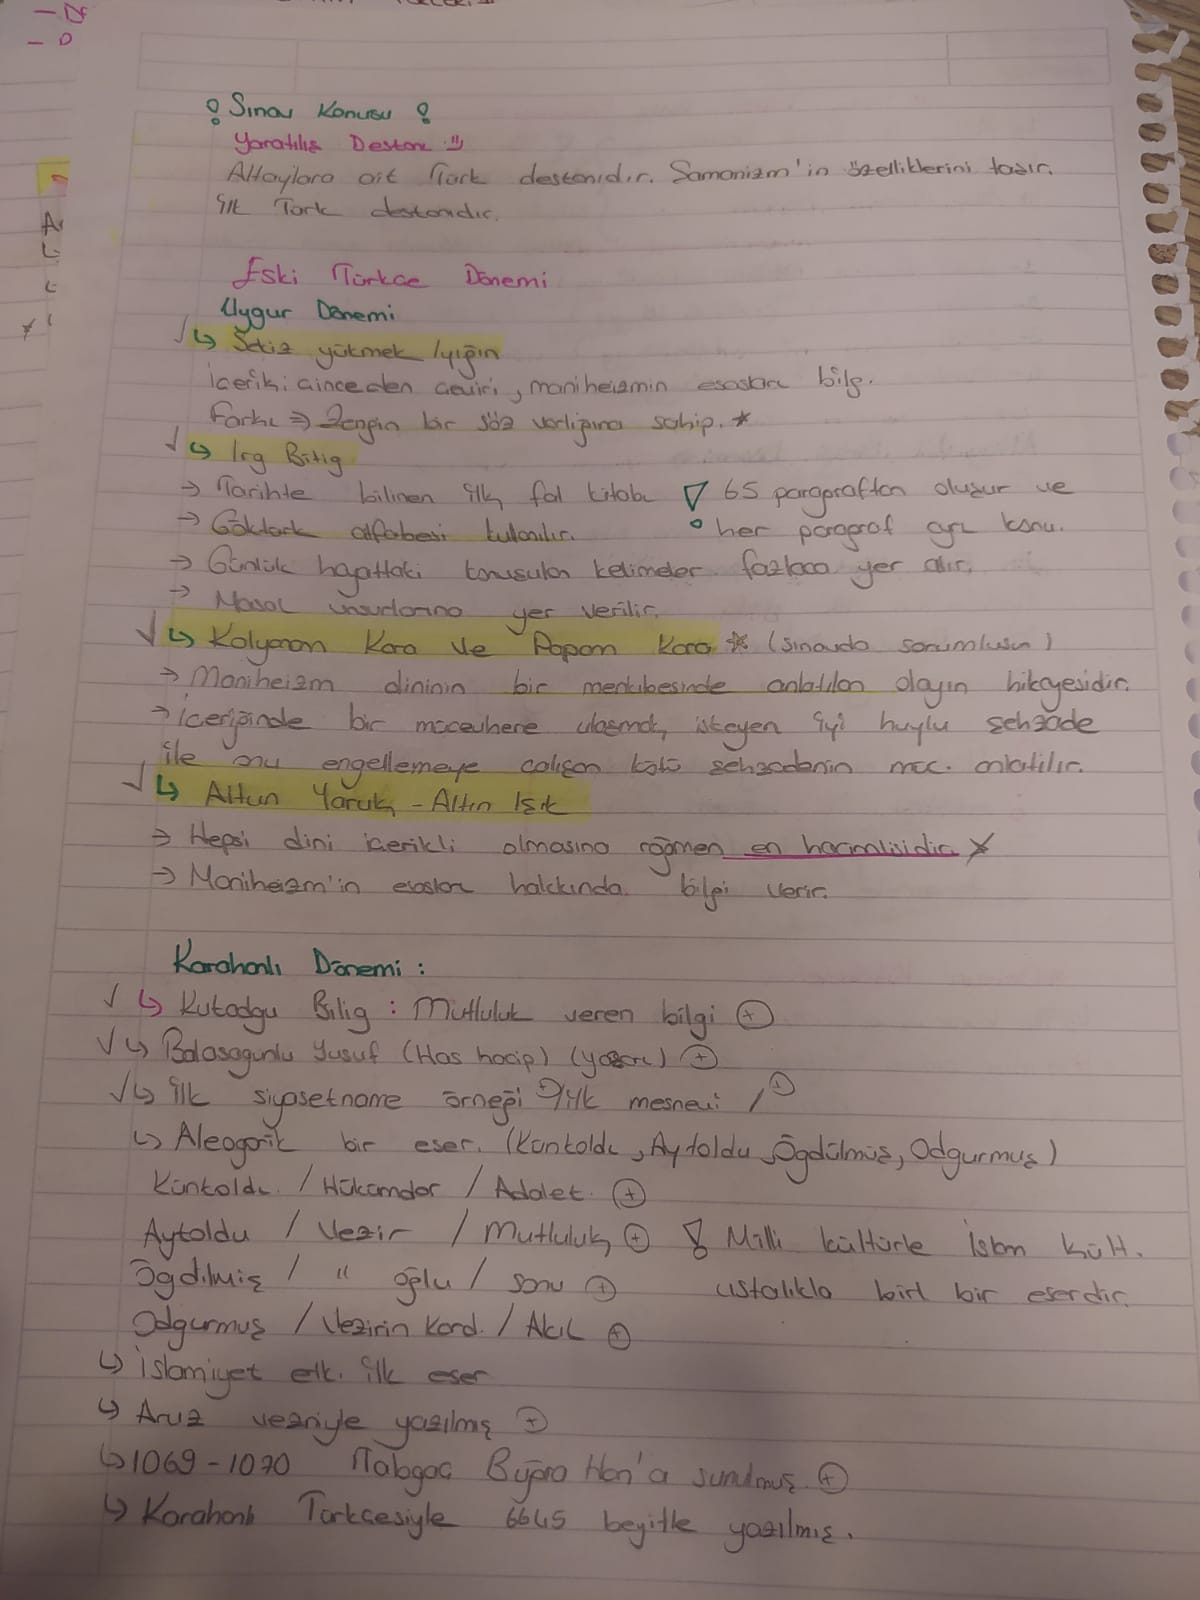 ! Sınav Konusu !
Yaratılış Destanı :)
Altaylara ait Türk destanıdır. Şamanizm'in özelliklerini taşır.
İlk Türk destanıdır.
Eski Türkçe Dönemi
Uygur Dönemi
√ ↳ Sekiz yükmek / yığın
İçerik: çinceden çeviri, maniheizmin esasları bilg.
Farkı ⇒ Zengin bir söz varlığına sahip. *
√ ↳ Irg Bitig
→ Tarihte bilinen ilk fal kitabı ! 65 paragraftan oluşur ve
→ Göktürk alfabesi kullanılır. her paragraf ayrı konu.
→ Günlük hayattaki konuşulan kelimeler fazlaca yer alır.
→ Masal unsurlarına yer verilir.
√ ↳ Kalyanam Kara ve Papam Kara ☆ (sınavda sorumlusun)
→ Maniheizm dininin bir menkıbesinde anlatılan olayın hikayesidir.
→ İçeriğinde bir mücevhere ulaşmak isteyen iyi huylu şehzade
ile onu engellemeye çalışan kötü şehzadenin müc. anlatılır.
√ ↳ Altun Yaruk - Altın Işık
→ Hepsi dini içerikli olmasına rağmen en hacimlisidir. *
→ Maniheizm'in esasları hakkında bilgi verir.
Karahanlı Dönemi :
√ ↳ Kutadgu Bilig : Mutluluk veren bilgi (+)
√ ↳ Balasagunlu Yusuf (Has hacip) (yazarı) (+)
√ ↳ İlk siyasetname örneği (+) / ilk mesnevi / (+)
↳ Aleogorik bir eser. (Küntoldı, Aytoldu, Ögdülmüş, Odgurmuş)
Küntoldı / Hükümdar / Adalet (+)
Aytoldu / Vezir / Mutluluk (+) ! Milli kültürle İslam kült.
Ögdilmiş / " oğlu / sonu (+) ustalıkla birl bir eserdir.
Odgurmuş / Vezirin kard. / Akıl (+)
↳ İslamiyet etk. ilk eser
↳ Aruz vezniyle yazılmış (+)
↳ 1069 - 1070 Tabgaç Buğra Han'a sunulmuş (+)
↳ Karahanlı Türkçesiyle 6645 beyitle yazılmış.